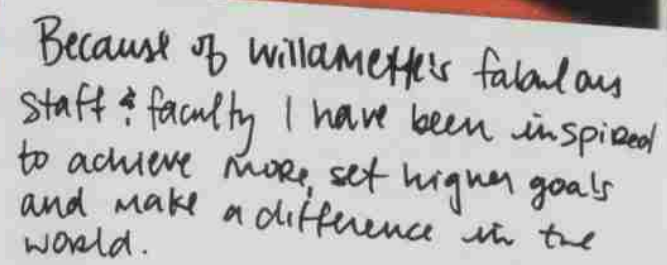 Because of Willamette's fabulous
staff & faculty I have been inspired
to achieve more, set higher goals
and make a difference in the
world.